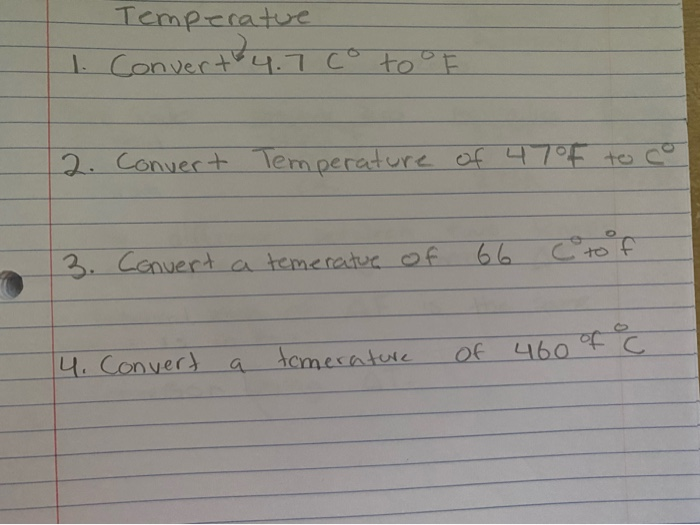 Temperatue
1. Convert 4.7 C° to °F
2. Convert Temperature of 47°F to C°
3. Convert a temeratue of 66 C° to °f
4. Convert a tomerature of 460 °f °C